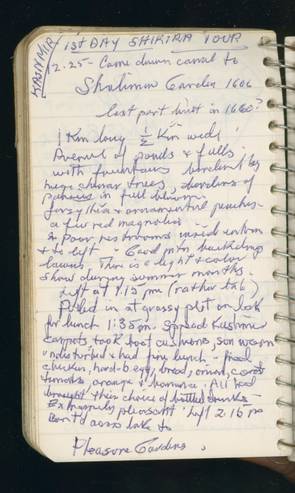 KASHMIR
1ST DAY SHIKIRA TOUR
2.25 - Came down canal to
Shalimar Garden 1606
last part built in 1660?
1 Km long ½ Km wide
Avenue of ponds & falls
with fountains bordered by
huge chenar trees, borders of
pansies in full bloom
forsythia & ornamental peaches
a few red magnolias
Poor restrooms inside entrance
& to left - Good mtn backdrop
lawns. There is a light & color
show during summer months.
Left at 1:15 pm (rather tab)
Pulled in at grassy plot on lake
for lunch 1:35 pm. Spread Kashmir
carpets, took foot cushions, sun warm
undisturbed & had fine lunch - fried
chicken, hard-b egg, bread, onion, carrots
tomatoes, orange & banana. All had
brought their choice of bottled drinks -
Extremely pleasant. Left 2:15 pm
Cont'd across lake to
Pleasure Gardens.